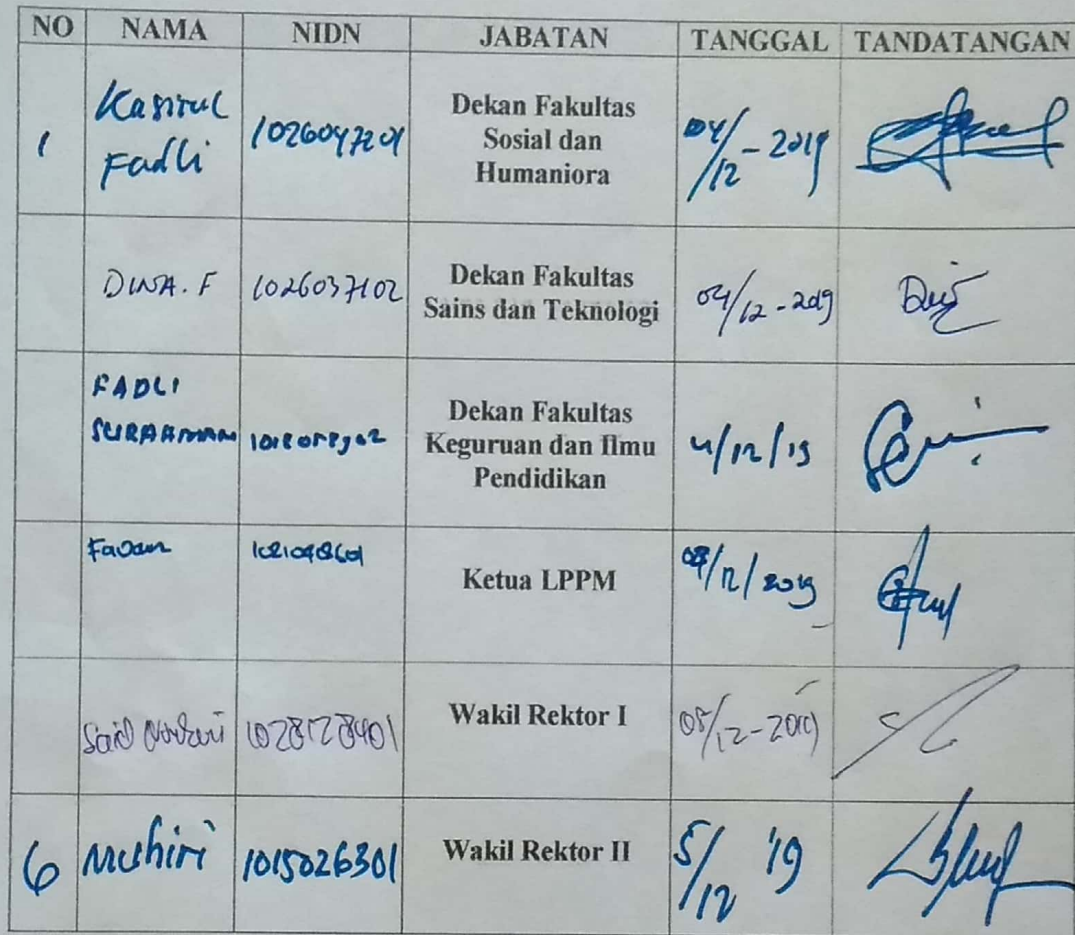 NO NAMA NIDN JABATAN TANGGAL TANDATANGAN
1 Kasirul Fadli 1026047201 Dekan Fakultas Sosial dan Humaniora 04/12-2019
DINA. F 1026037102 Dekan Fakultas Sains dan Teknologi 04/12-2019
FADLI SURAHMAN Dekan Fakultas Keguruan dan Ilmu Pendidikan 4/12/19
Ketua LPPM /12/2019
Said 1028128401 Wakil Rektor I 05/12-2019
6 Muhiri 1015026301 Wakil Rektor II 5/12 '19